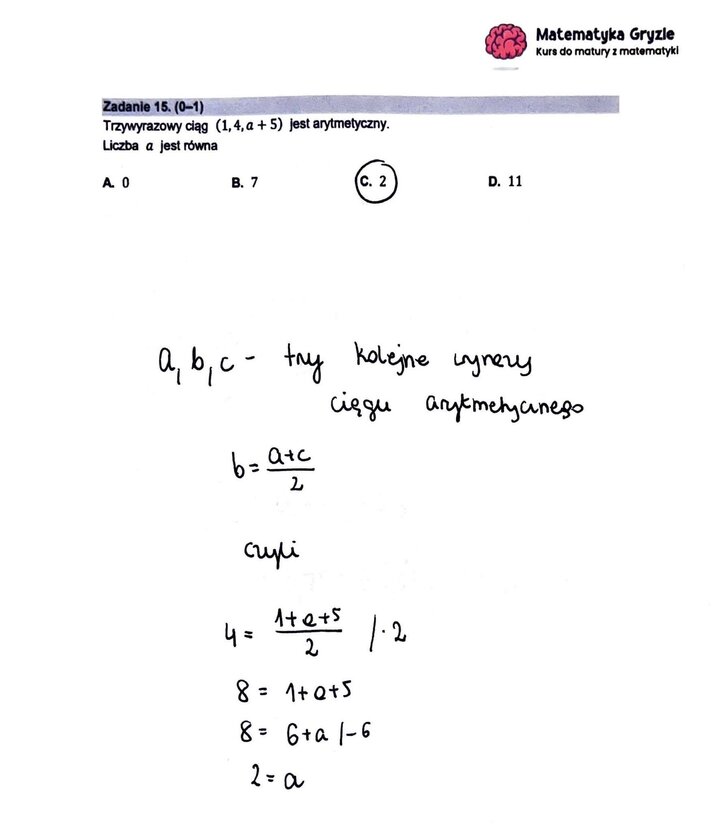 Matematyka Gryzie
Kurs do matury z matematyki
Zadanie 15. (0–1)
Trzywyrazowy ciąg (1, 4, a + 5) jest arytmetyczny.
Liczba a jest równa
A. 0 B. 7 C. 2 D. 11
a, b, c - trzy kolejne wyrazy
ciągu arytmetycznego
b = a+c/2
czyli
4 = 1+a+5/2 /·2
8 = 1+a+5
8 = 6+a /-6
2 = a